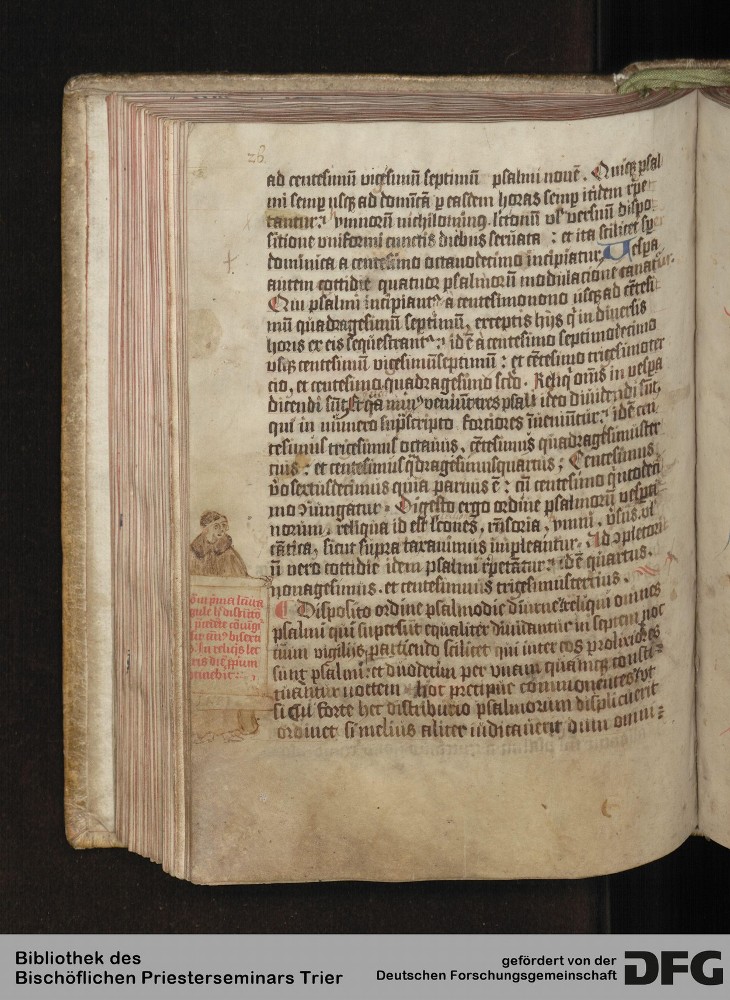 26
ad centesimū vigesimū septimū psalmi nouē. Quiqꝫ psal
mi semp usqꝫ ad domīcā p easdem horas semp itidem rēpe
tantur: ymnorū nichilominꝰ lctonū vl' versuū dispo
sitione vniformi cunctis diebus seruata : et ita scilicet sp̄
dominica a centesimo octauodecimo incipiatur. Uespa
autem cottidie quatuor psalmorū modulacione canatur.
Qui psalmi incipiantr a centesimonono usqꝫ ad cētesi
mū quadragesimū septimū, exceptis hijs q̄ in diuersis
horis ex eis sequestrantr: idē a centesimo septimodecimo
vsqꝫ centesimū vigesimūseptimū : et cētesimo tricesimoter
cio, et centesimo quadragesimo scdo. Reliq̄ om̄s in vespa
dicendi sūt Et q̄a minꝰ veniūt tres psal'i ideo diuidendi sūt,
qui in numero sup̄scripto forciores īueniūtur: idē cen
tesimus tricesimus octauus, cētesimus quadragesimuster
cius : et centesimus q̄dragesimusquartus ; Centesimus
vo sextusdecimus quia paruus ē : cū centesimo q̄ntodeci
mo ꝯiungatur. Digesto ergo ordine psalmorū vespti
norum, reliqua id est lcones, rn̄soria, ymni, v̄sus vl'
cātica, sicut supra taxauimus impleantur. Ad ꝯpletori
ū vero cottidie idem psalmi repetātur: idē quartus.
nonagesimus. et centesimus trigesimustercius.
¶ Disposito ordine psalmodie diurne reliqui omnes
psalmi qui supersūt equaliter diuidantur in septem noc
cium vigilijs, parciendo scilicet qui inter eos prolixiores
sunt psalmi : et duodecim per vnam quamqꝫ consti
tuantur noctem. hoc precipue cōmonentes vt
si Cui forte hec distribucio psalmorum displicuerit
ordinet si melius aliter iudicauerit dum omni=
Bibliothek des
Bischöflichen Priesterseminars Trier
gefördert von der
Deutschen Forschungsgemeinschaft
DFG